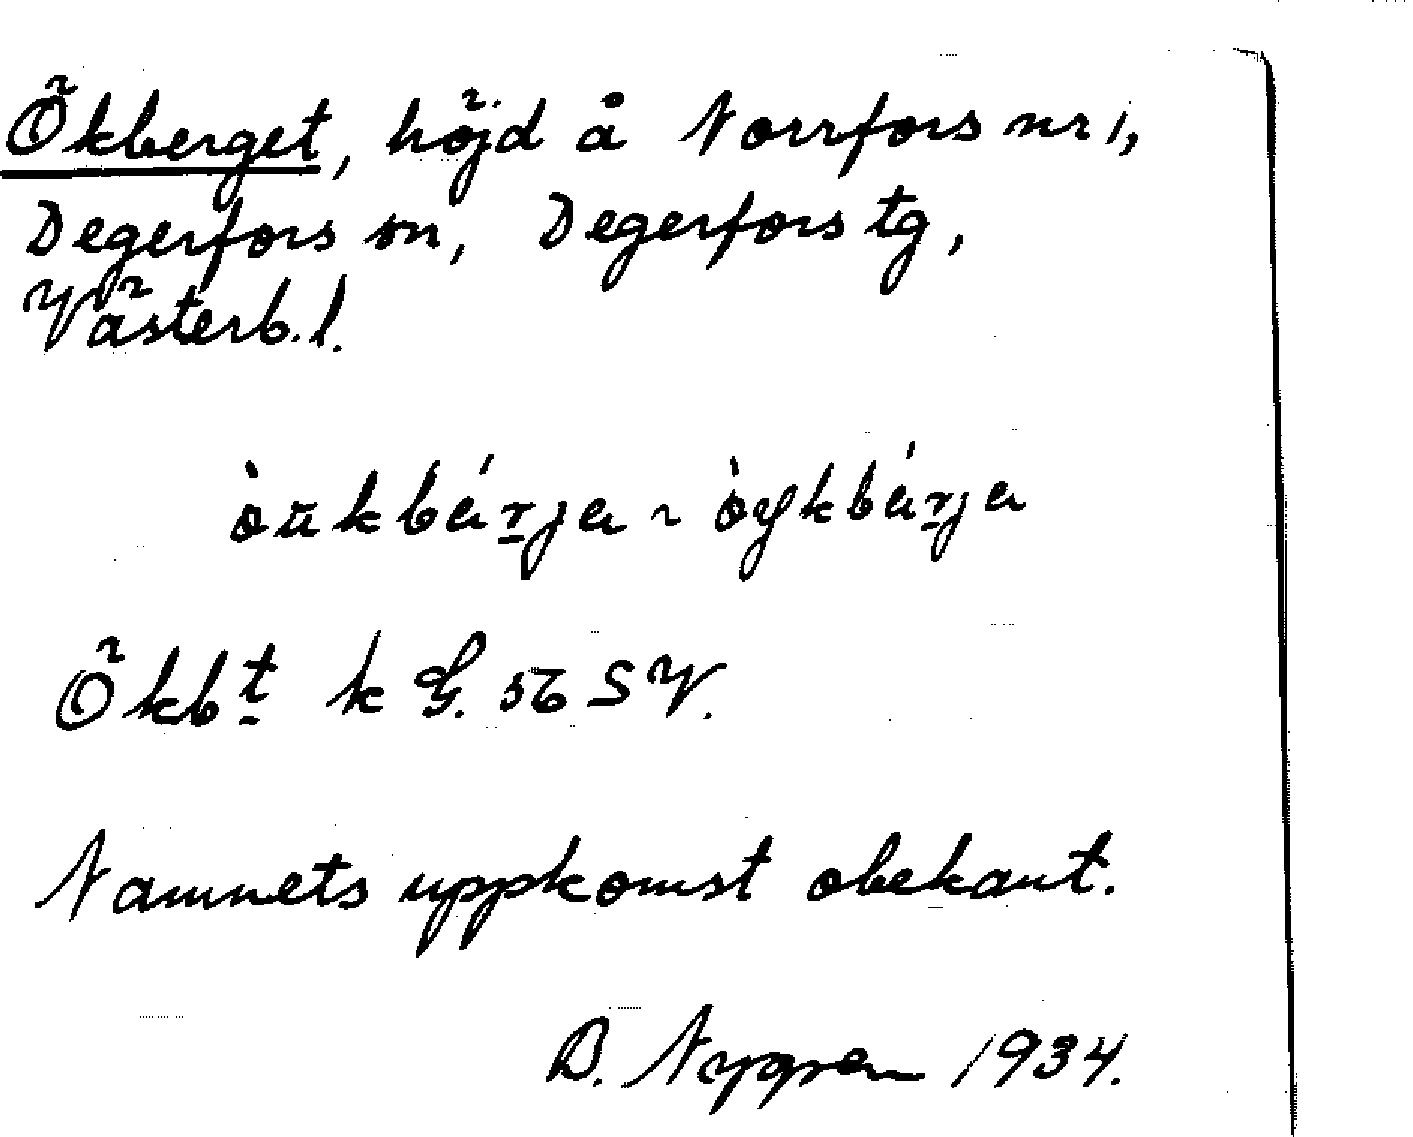 Ökberget, höjd å Norrfors nr 1,
Degerfors sn, Degerfors tg,
Västerb. l.
òu̇kbárja ~ òykbárja
Ökbt k G. 56 SV.
Namnets uppkomst obekant.
B. Nygren 1934.